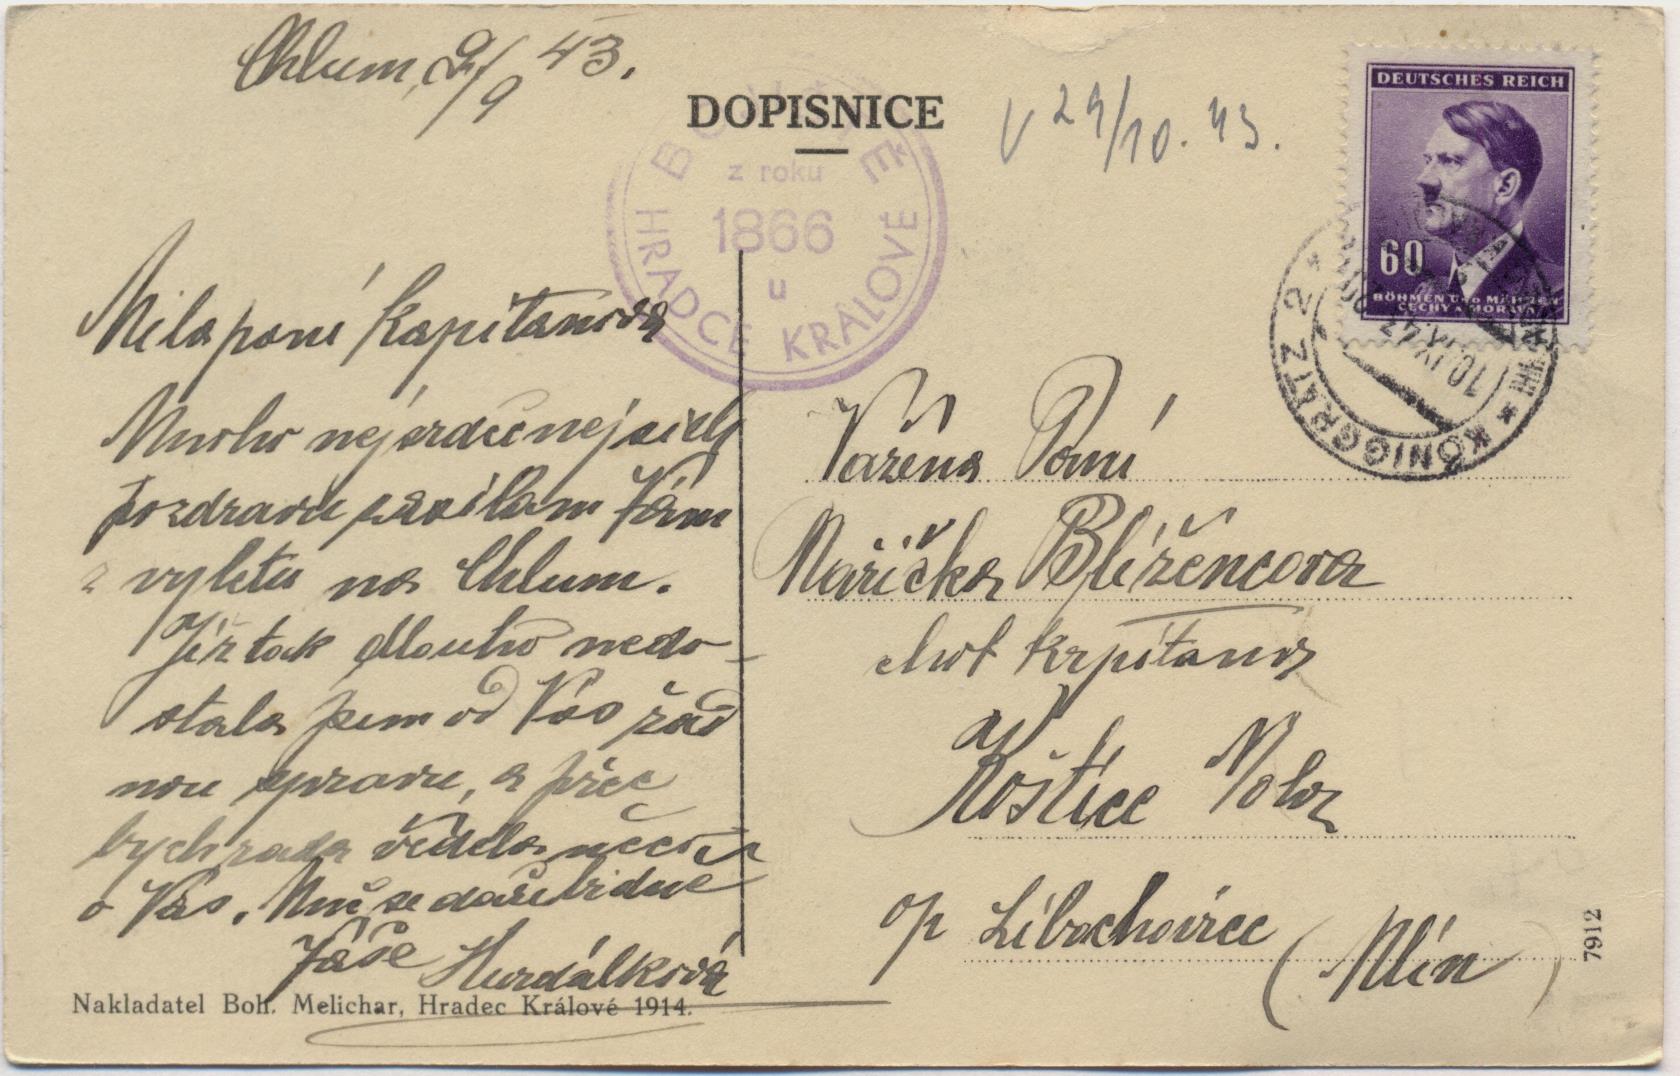 Chlum, 9/9 43.
DOPISNICE
V 29/10. 43.
BOJIŠTĚ
z roku
1866
u
HRADCE KRÁLOVÉ
DEUTSCHES REICH
60
BÖHMEN UND MÄHREN
ČECHY A MORAVA
KÖNIGGRÄTZ 2
10.IX.43
Milá paní kapitánová
Mnoho nejsrdečnejsich
pozdravu zasílam Vám
z vyletu na Chlum.
Již tak dlouho nedo-
stala jsem od Vás žád
nou zpravu, a přec
bych rada věděla něco
o Vás. Mně se daří bidně
Vaše Hurdálková
Važena Paní
Mařička Blížencova
chot kapitana
Koštice n/Ohř
op Libochovice
(Mlín)
Nakladatel Boh. Melichar, Hradec Králové 1914.
7912